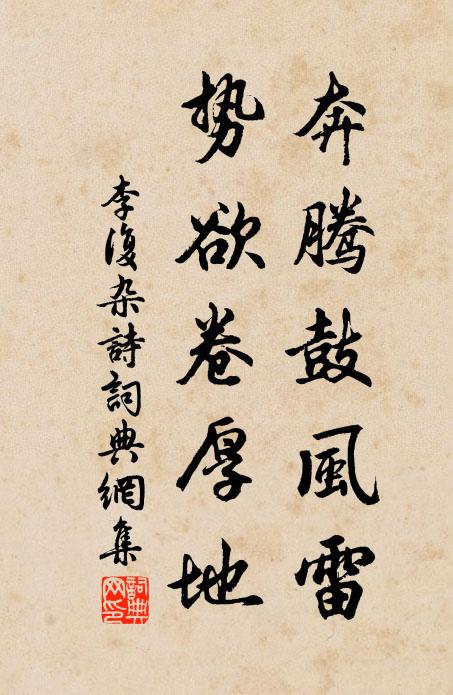 奔腾鼓風雷
势欲卷厚地
李復杂詩詞典網集
詞典
网印